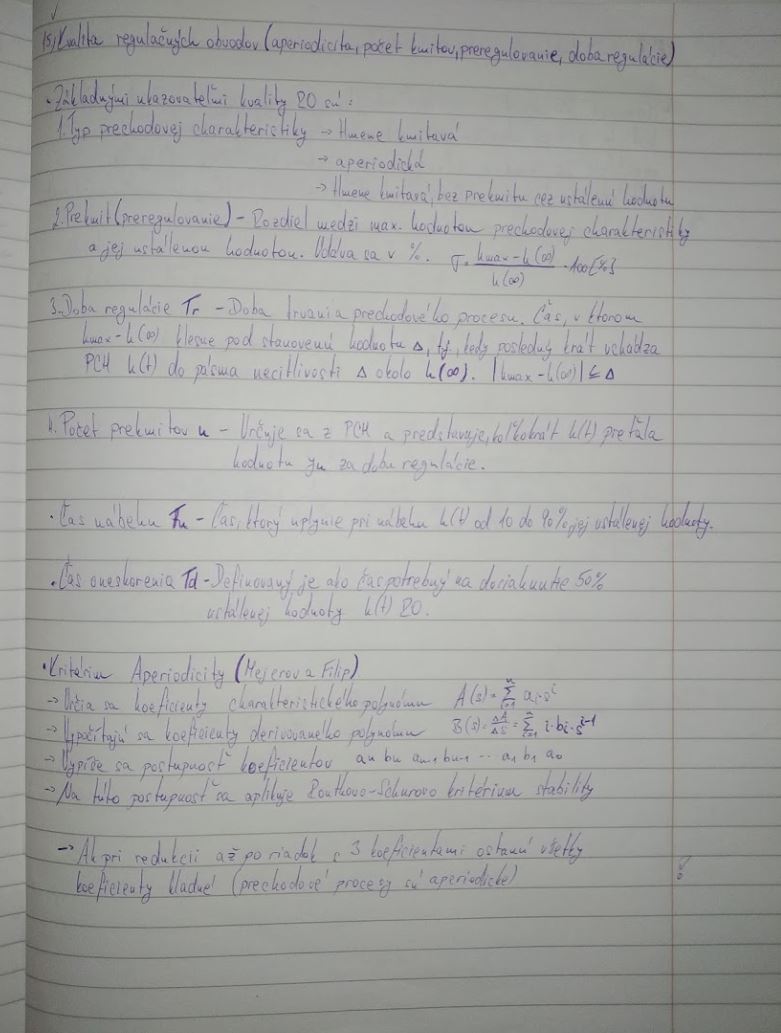 15, Kvalita regulačných obvodov (aperiodicita, počet kmitov, preregulovanie, doba regulácie)
• Základnými ukazovateľmi kvality RO sú:
1. Typ prechodovej charakteristiky → tlmene kmitavá
→ aperiodická
→ tlmene kmitavá, bez prekmitu cez ustálenú hodnotu
2. Prekmit (preregulovanie) - Rozdiel medzi max. hodnotou prechodovej charakteristiky
a jej ustálenou hodnotou. Udáva sa v %. σ = (hmax - h(∞)) / h(∞) · 100 [%]
3. Doba regulácie Tr - Doba trvania prechodového procesu. Čas, v ktorom
hmax - h(∞) klesne pod stanovenú hodnotu Δ, tj. kedy posledný krát vchádza
PCH h(t) do pásma necitlivosti Δ okolo h(∞). |hmax - h(∞)| ≤ Δ
4. Počet prekmitov n - Určuje sa z PCH a predstavuje, koľkokrát h(t) preťala
hodnotu za dobu regulácie.
• Čas nábehu Tn - Čas, ktorý uplynie pri nábehu h(t) od 10 do 90% jej ustálenej hodnoty.
• Čas oneskorenia Td - Definovaný je ako čas potrebný na dosiahnutie 50%
ustálenej hodnoty h(t) RO.
• Kritérium Aperiodicity (Mejerov a Filip)
→ Určia sa koeficienty charakteristického polynómu A(s) = Σ ai·s^i
→ Vypočítajú sa koeficienty derivovaného polynómu B(s) = ΔA/Δs = Σ i·bi·s^i-1
→ Vypíše sa postupnosť koeficientov an bn an-1 bn-1 ... a1 b1 a0
→ Na túto postupnosť sa aplikuje Routhovo-Schurovo kritérium stability
→ Ak pri redukcii až po riadok s 3 koeficientami ostanú všetky
koeficienty kladné (prechodové procesy sú aperiodické)